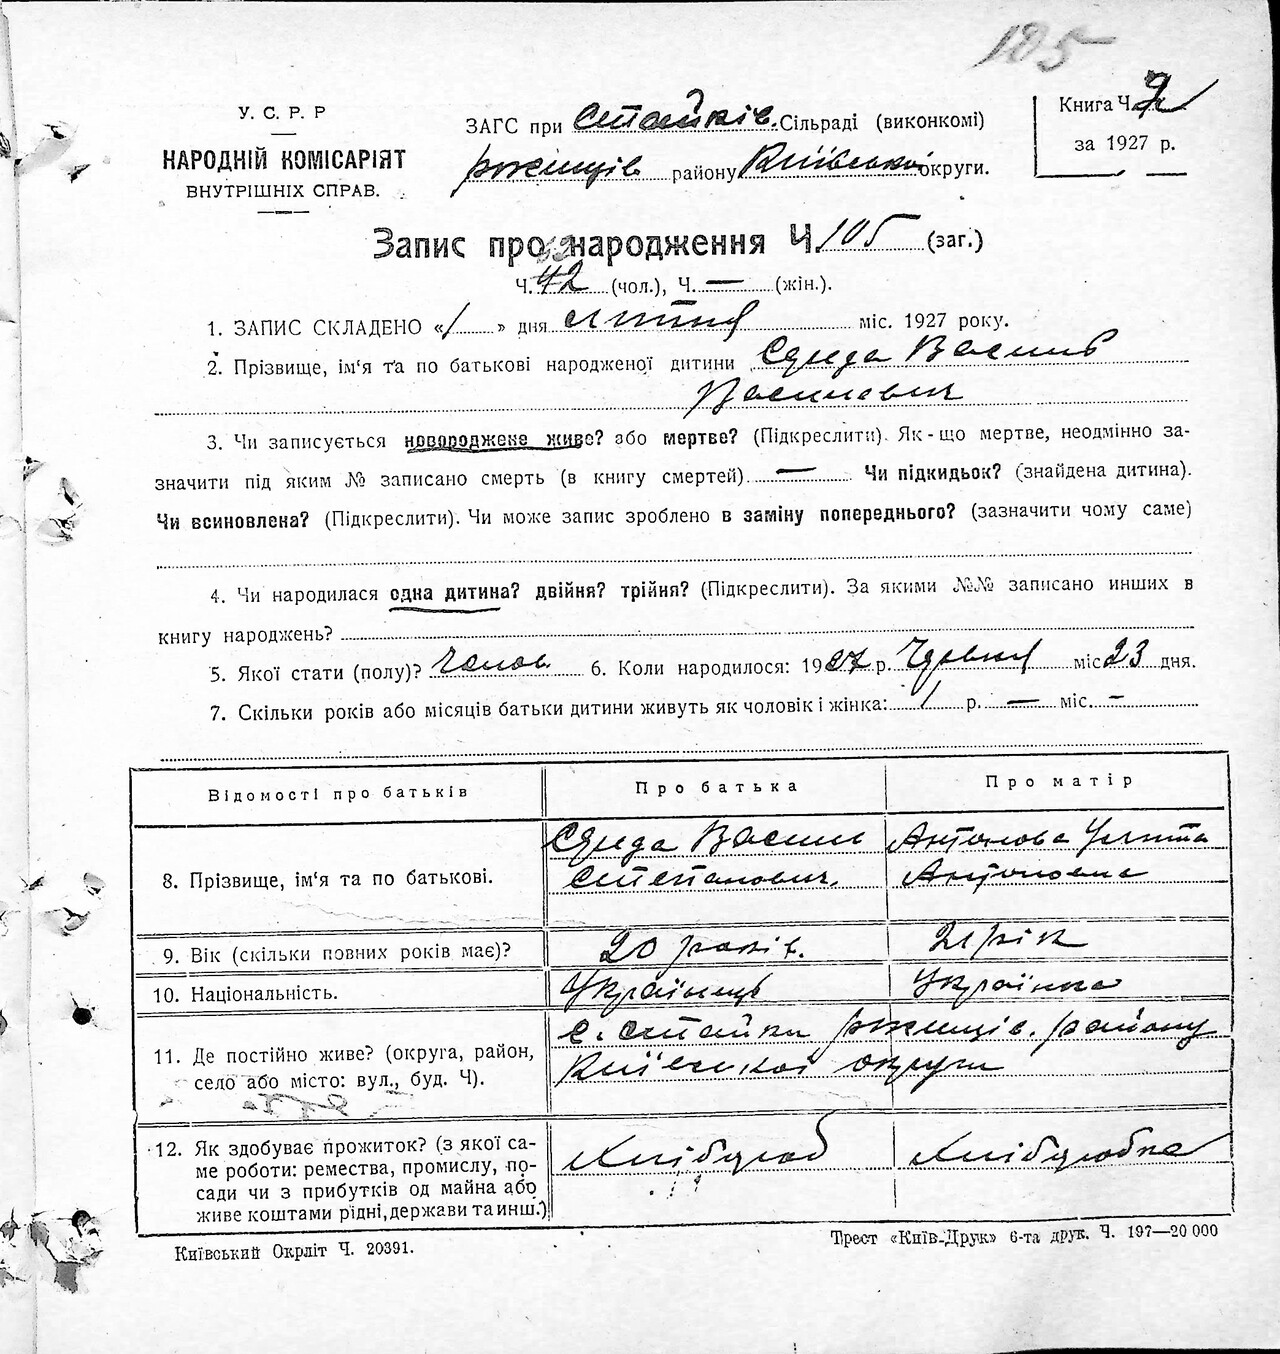 105
У. С. Р. Р
НАРОДНІЙ КОМІСАРІЯТ
ВНУТРІШНІХ СПРАВ.
ЗАГС при Стайків. Сільраді (виконкомі)
ржищів району Київської округи.
Книга Ч.
за 1927 р.
Запис про народження Ч. 105 (заг.)
Ч. 42 (чол.), Ч. — (жін.).
1. ЗАПИС СКЛАДЕНО «1» дня липня міс. 1927 року.
2. Прізвище, ім‘я та по батькові народженої дитини Середа Василь
Василевич
3. Чи записується новороджене живе? або мертве? (Підкреслити). Як-що мертве, неодмінно за-
значити під яким № записано смерть (в книгу смертей). — Чи підкидьок? (знайдена дитина).
Чи всиновлена? (Підкреслити). Чи може запис зроблено в заміну попереднього? (зазначити чому саме)
4. Чи народилася одна дитина? двійня? трійня? (Підкреслити). За якими №№ записано инших в
книгу народжень?
5. Якої стати (полу)? Чолов. 6. Коли народилося: 1927 р. Червня міс 23 дня.
7. Скільки років або місяців батьки дитини живуть як чоловік і жінка: 1 р. — міс. –
Відомості про батьків Про батька Про матір
8. Прізвище, ім‘я та по батькові. Середа Василь Степанович. Антонова Улита Антоновна
9. Вік (скільки повних років має)? 20 років. 21 рік
10. Національність. Українець Українка
11. Де постійно живе? (округа, район,
село або місто: вул., буд. Ч).
с. Стайки ржищів. району
Київської округи
12. Як здобуває прожиток? (з якої са-
ме роботи: ремества, промислу, по-
сади чи з прибутків од майна або
живе коштами рідні, держави та инш.)
Хлібороб Хліборобка
Київський Окрліт Ч. 20391.
Трест «Київ-Друк» 6-та друк. Ч. 197—20 000